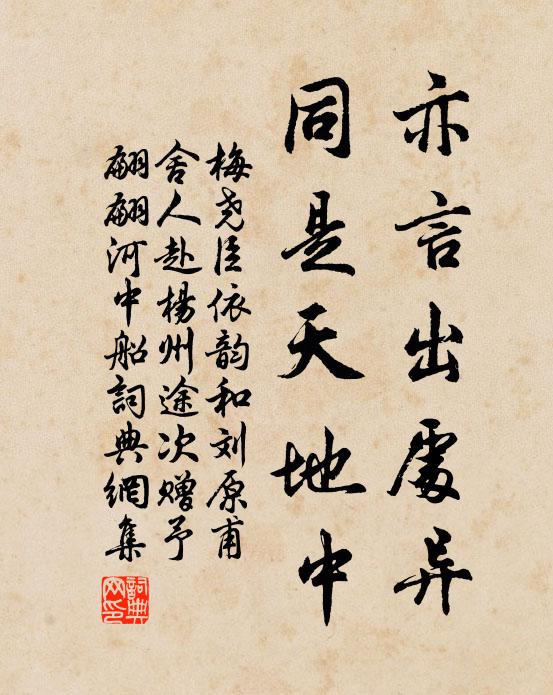 亦言出處异
同是天地中
梅尧臣依韵和刘原甫
舍人赴楊州途次赠予
翩翩河中船詞典網集
詞典网印